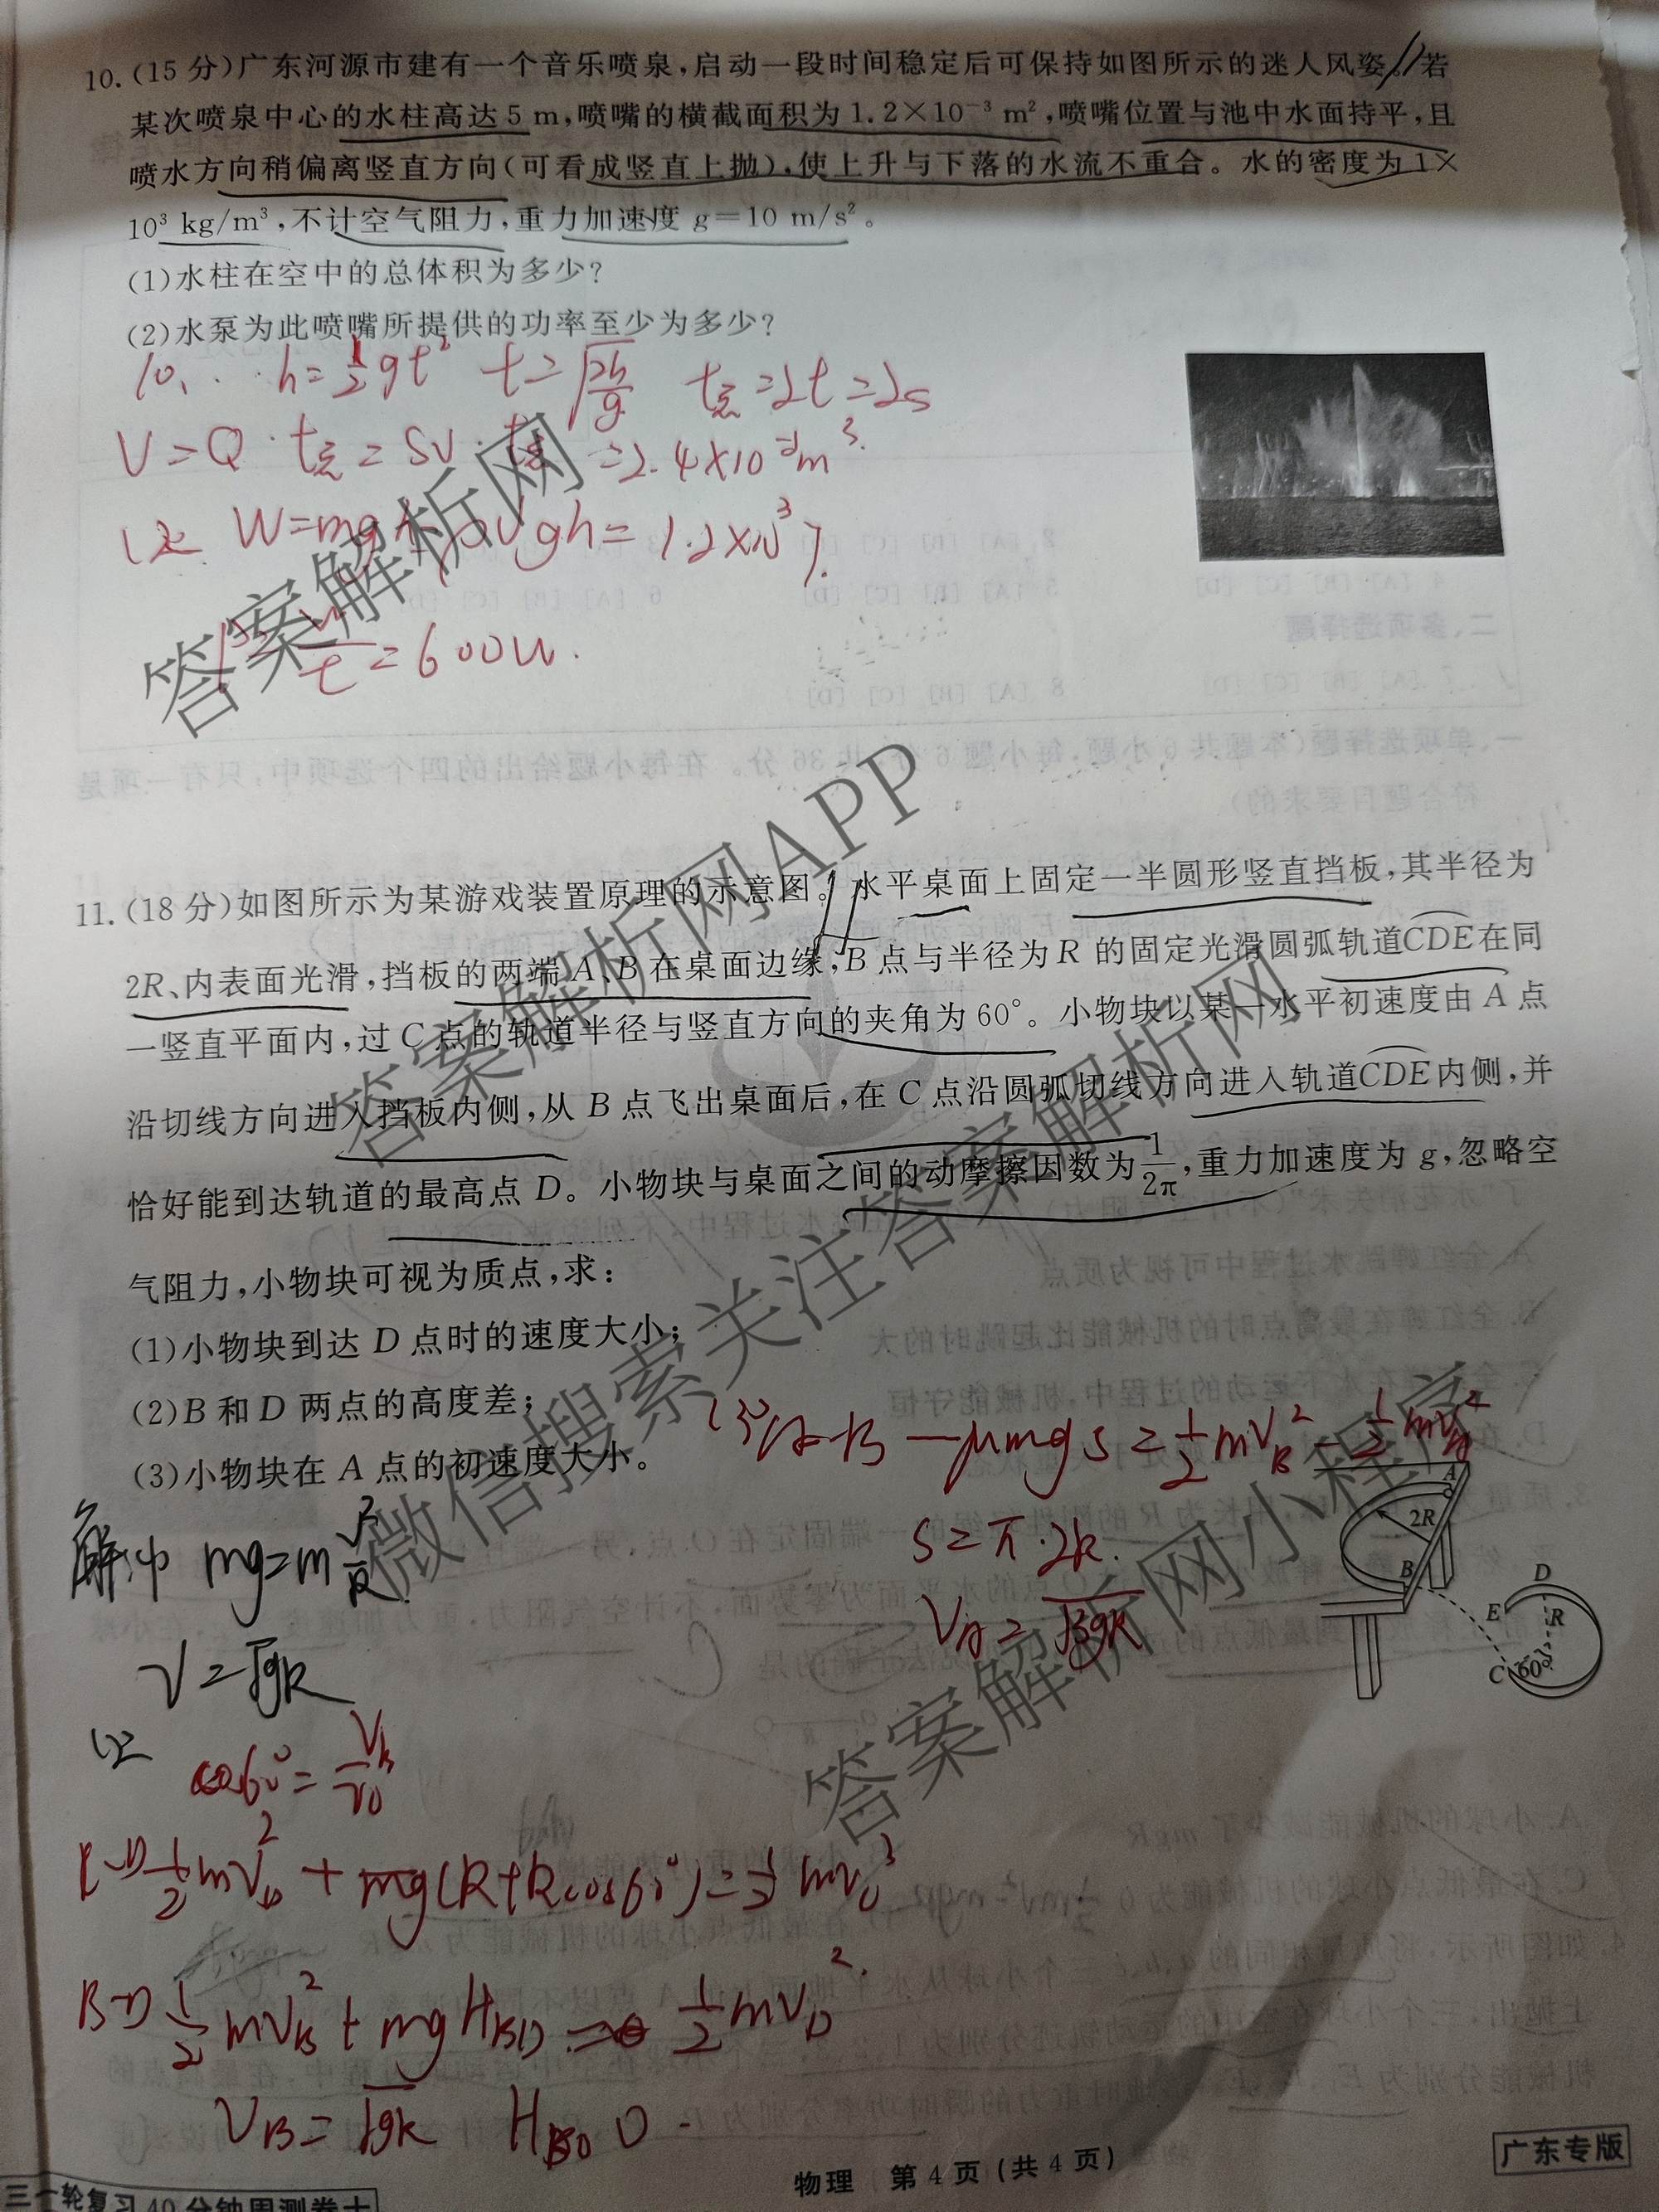 10.(15分)广东河源市建有一个音乐喷泉,启动一段时间稳定后可保持如图所示的迷人风姿。若
某次喷泉中心的水柱高达5 m,喷嘴的横截面积为1.2×10⁻³ m²,喷嘴位置与池中水面持平,且
喷水方向稍偏离竖直方向(可看成竖直上抛),使上升与下落的水流不重合。水的密度为1×
10³ kg/m³,不计空气阻力,重力加速度 g=10 m/s²。
(1)水柱在空中的总体积为多少?
(2)水泵为此喷嘴所提供的功率至少为多少?
10、 h=½gt² t=√(2h/g) t总=2t=2s
V=Q·t总=SV·t总=2.4×10⁻²m³.
(2) W=mgh=ρVgh=1.2×10³J.
P=W/t=600W.
11.(18分)如图所示为某游戏装置原理的示意图。水平桌面上固定一半圆形竖直挡板,其半径为
2R、内表面光滑,挡板的两端A、B在桌面边缘,B点与半径为R的固定光滑圆弧轨道CDE在同
一竖直平面内,过C点的轨道半径与竖直方向的夹角为60°。小物块以某一水平初速度由A点
沿切线方向进入挡板内侧,从B点飞出桌面后,在C点沿圆弧切线方向进入轨道CDE内侧,并
恰好能到达轨道的最高点D。小物块与桌面之间的动摩擦因数为1/2π,重力加速度为g,忽略空
气阻力,小物块可视为质点,求:
(1)小物块到达D点时的速度大小;
(2)B和D两点的高度差;
(3)小物块在A点的初速度大小。
(3) A→B -μmgs=½mV_B²-½mV_A²
S=π·2R.
V_A=√3gR
A
2R
B
D
E
R
C
60°
解:(1) mg=m V²/R
V=√gR
(2)
cos60°=V_B/
½mV_D²+mg(R+Rcos60°)=½mv_C²
B→D ½mV_B²+mgH_BD=½mV_D².
V_B=√gR H_BD 0
物理 第4页(共4页)
广东专版
一轮复习40分钟周测卷十
答案解析网
答案解析网APP
微信搜索关注答案解析网
答案解析网小程序